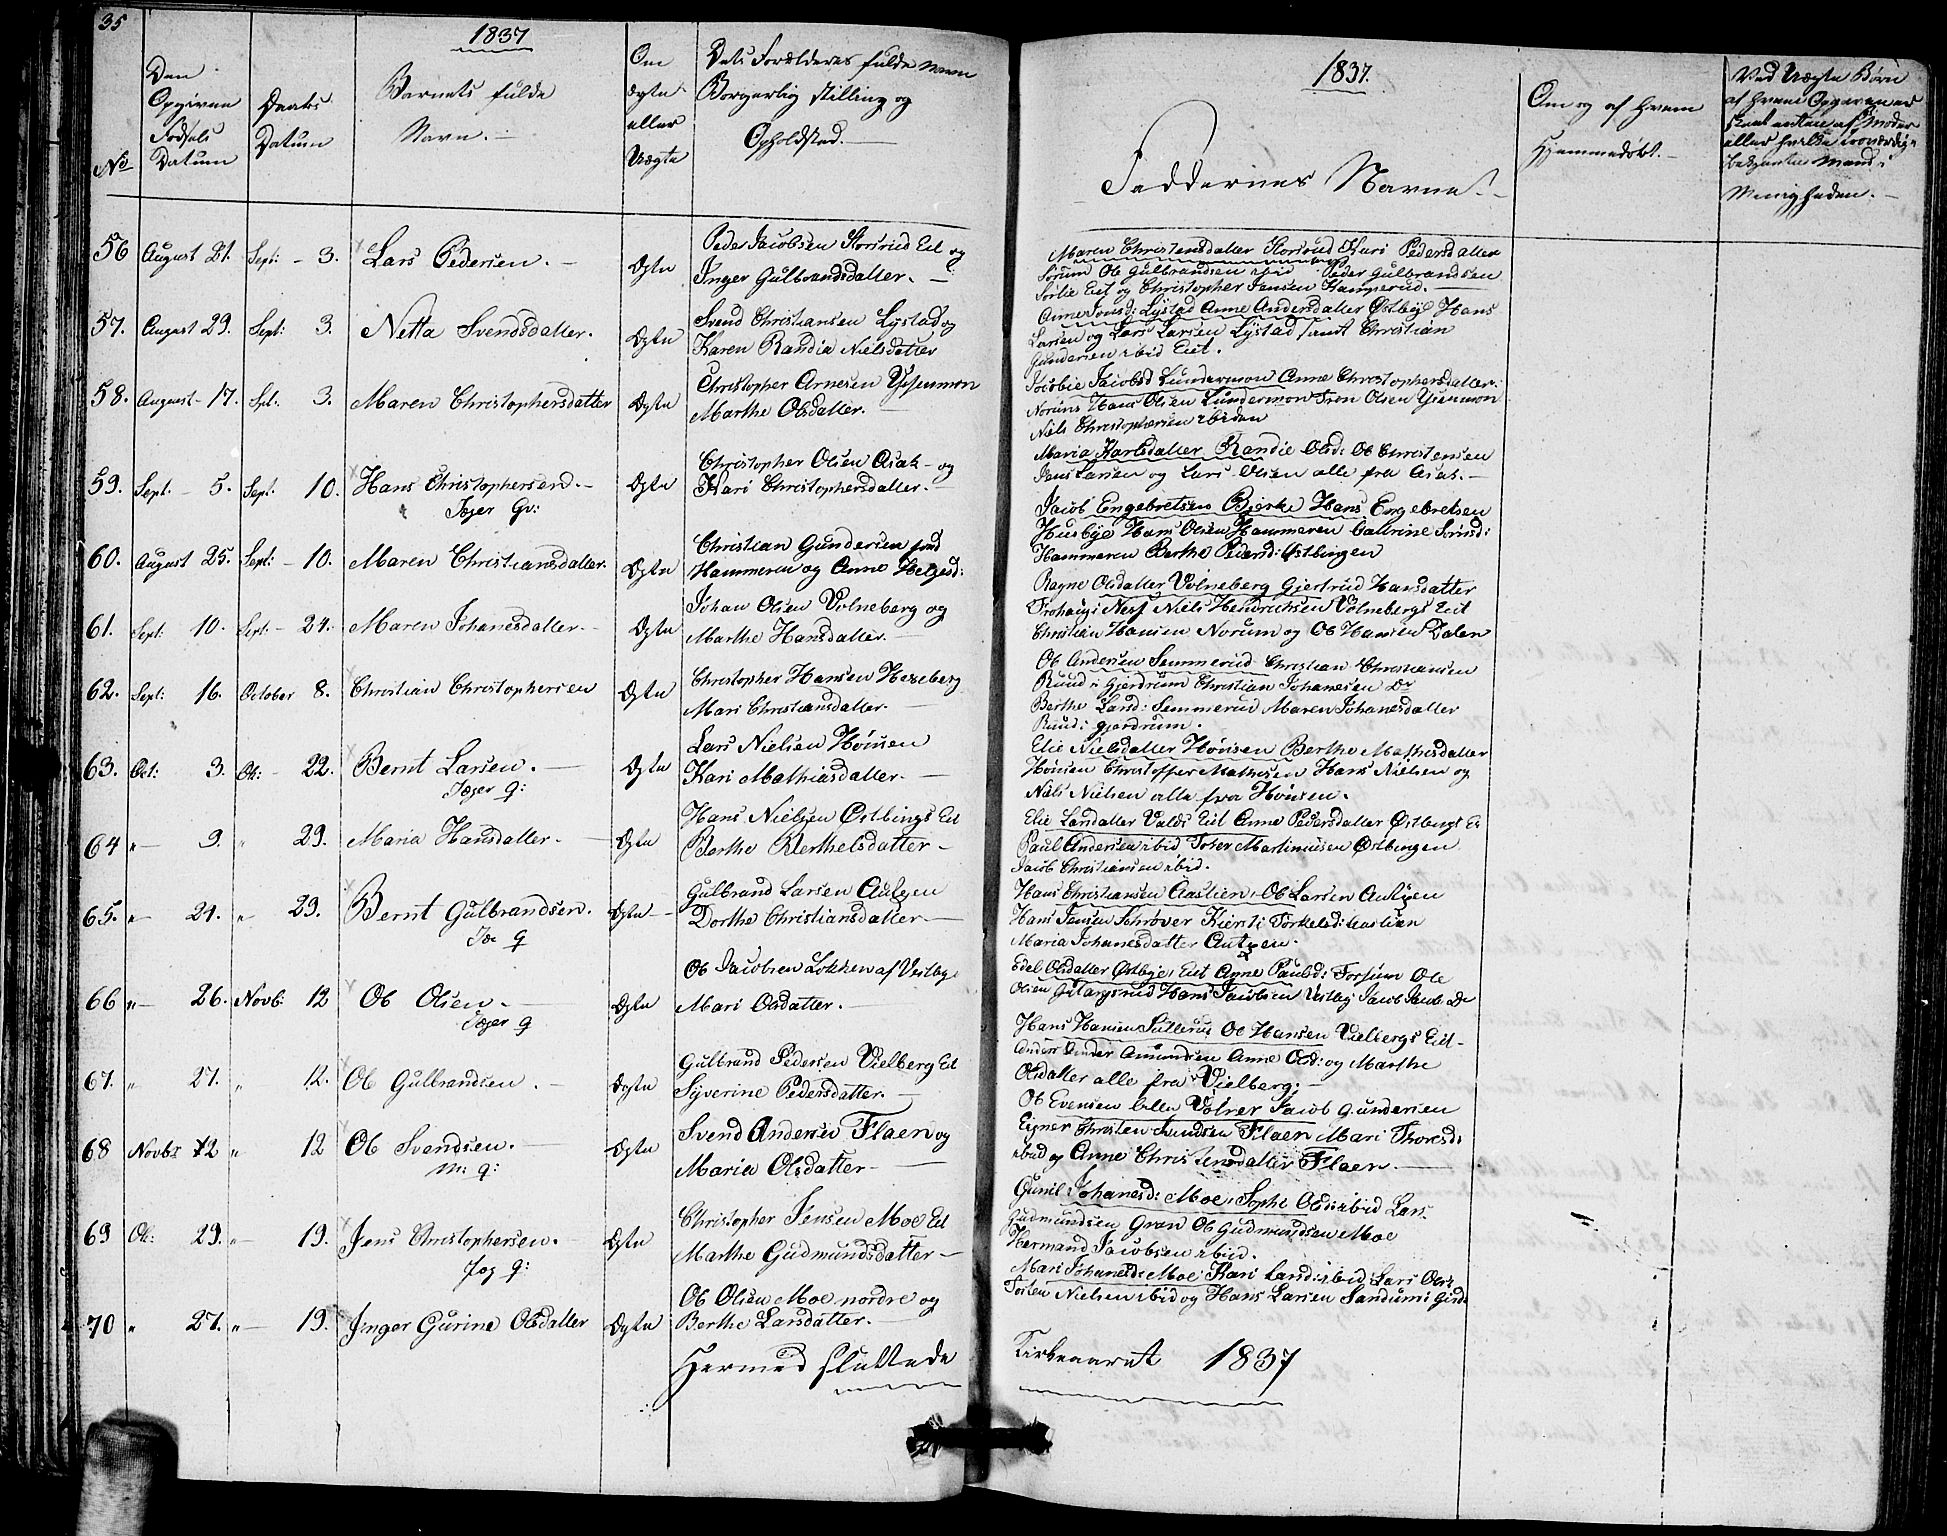 35
1837
No
Den
Opgivne
Fødsels
Datum
Daabs
Datum
Barnets fulde
Navn. -
Om
ægte
eller
Uægte
Dets Forældres fulde Navn
Borgerlig Stilling og
Opholdsted. -
56 August 21. Sept: - 3. Lars Pedersen. - Ægte
Peder Jacobsen Storsrud Eie og
Inger Gulbrandsdatter. -
57. August 29. Sept: 3. Netta Svendsdatter. Ægte
Svend Christiansen Lystad og
Karen Randia Nielsdatter
58. August - 17. Spt. 3. Maren Christophersdatter Ægte
Christopher Arnesen
Marthe Olsdatter. -
59. Sept. - 5. Sept. 10. Hans Christophersen. - Ægte
Jæger Gv:
Christopher Olsen Asak - og
Kari Christophersdatter. -
60. August 25. Sept: - 10. Maren Christiansdatter. Ægte
Christian Gundersen
Hammeren og Anne Helgesd:
61. Sept: 10. Sept: - 24. Maren Johanesdatter. - Ægte
Johan Olsen Volneberg og
Marthe Hansdatter. -
62. Sept: 16. October 8. Christian Christophersen Ægte
Christopher Hansen Hexeberg
Mari Christiansdatter. -
63. Oct: 3. Ok: - 22. Bernt Larsen. - Ægte
Jæger g:
Lars Nielsen Hönsen
Kari Mathiasdatter. -
64 " - 9. " 29. Maria Hansdatter. - Ægte
Hans Nielsen Østbings Eie
Berthe Berthelsdatter -
65. " - 21. " 29. Bernt Gulbrandsen. Ægte -
Jæ g
Gulbrand Larsen Autzen
Dorthe Christiansdatter -
66 " - 26. Novb: 12 Ole Olsen. - Ægte
Jæger g
Ole Jacobsen Løkken af Vestby
Mari Olsdatter. -
67. " 27. " 12. Ole Gulbrandsen. - Ægte
Gulbrand Pedersen Vielberg Eie
Syverine Pedersdatter. -
68 Novbr 12 " 12 Ole Svendsen. - Ægte
m: g:
Svend Andersen Flaen og
Maria Olsdatter -
69 Ok: 29. " - 19. Jens Christophersen. - Ægte
Jæg g:
Christopher Jensen Moe Eie
Marthe Gudmundsdatter -
70 " 27. " - 19. Inger Gurine Olsdatter Ægte
Ole Olsen Moe nordre og
Berthe Larsdatter. -
Hermed sluttede
1837.
Faddernes Navne. -
Om og af hvem
Hjemmedøbt. -
Ved Uægte Børn
af hvem Opgivenes
skeet enten af Moder
eller hvilke troværdig
bekjendte Mænd i
Menigheden. -
Maren Christensdatter Storsrud Kari Pedersdatter
Sørum Ole Gulbrandsen ibid Peder Gulbrandsen
Sørlie Eiet og Christopher Jensen Hamperud. -
Anne Jonsd: Lystad Anne Andersdatter Østbye Hans
Larsen og Lars Larsen Lystad samt Christian
Gundersen ibid Eiet.
Jacobie Jacobsd Lundermon Anne Christophersdatter
Norums Hans Olsen Lundermon Iron Olsen
Niels Christophersen ibiden
Maria Karlsdatter Randie Olsd: Ole Christensen
Jens Larsen og Lars Olsen alle fra Asak. -
Jacob Engebretsen Bjerke Hans Engebretsen
Husebye Hans Olsen Hammeren Cathrine Simensd:
Hammeren Berthe Pedersd: Østbingen
Ragne Olsdatter Volneberg Gjertrud Hansdatter
Niels Hendrichsen Volnebergs Eiet
Christian Hansen Norum og Ole Hansen Dalen
Ole Andersen Semmerud Christian Christiansen
Ruud i Gjerdrum Christian Johanesen Do
Berthe Larsd: Semmerud Maren Johanesdatter
Ruud i Gjerdrum.
Elie Nielsdatter Hönsen Berthe Mathisdatter
Hönsen Christopher Mathesen Hans Nielsen og
Niels Nielsen alle fra Hönsen.
Elie Larsdatter Valds Eiet Anne Pedersdatter Østbergt Ei
Paul Andersen ibid Peter Martinusen Østbingen
Jacob Christiansen ibid.
Hans Christiansen Aastien, Ole Larsen Autzen
Hans Jensen Schrøver Kiersti Torkelsd: Aastien
Maria Johanesdatter Autzen.
Edel Olsdatter Østbye, Eiet Anne Paulsd: Forsum Ole
Olsen Hans Jacobsen Vestby Jacob Jacobs Do
Hans Hansen Sullerud Ole Hansen Vielbergs Eiet -
Amundsen Anne Olsd: og Marthe
Olsdatter alle fra Vielberg. -
Ole Evensen Lille Volner Jacob Gundersen
Eigner Christen Knudsen Flaen Mari Thoresd:
ibid og Anne Christensdatter Flaen. -
Gunil Johanesd: Moe, Sophi Olsd: ibid Lars
Gudmundsen Gran Ole Gudmundsen Moe
Hermand Jacobsen ibid.
Mari Johanesd: Moe Kari Larsd: ibid: Lars Olsen
Torsten Nielsen ibid og Hans Larsen Sandum i Gjerd:
Kirkeaaret 1837